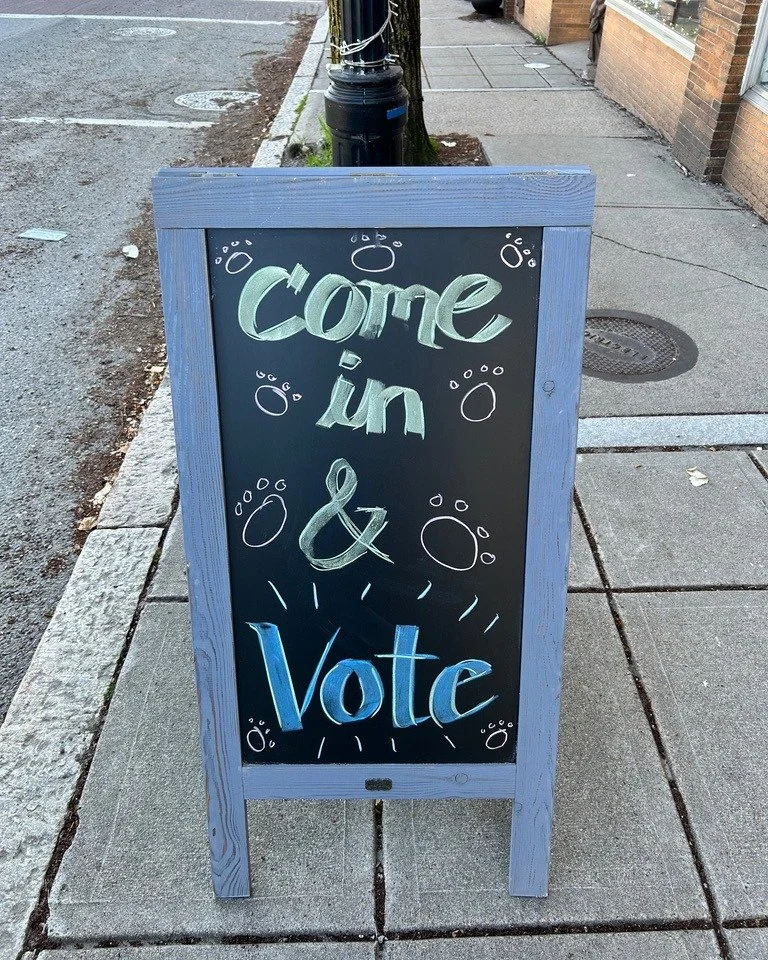 Come
in
&
Vote